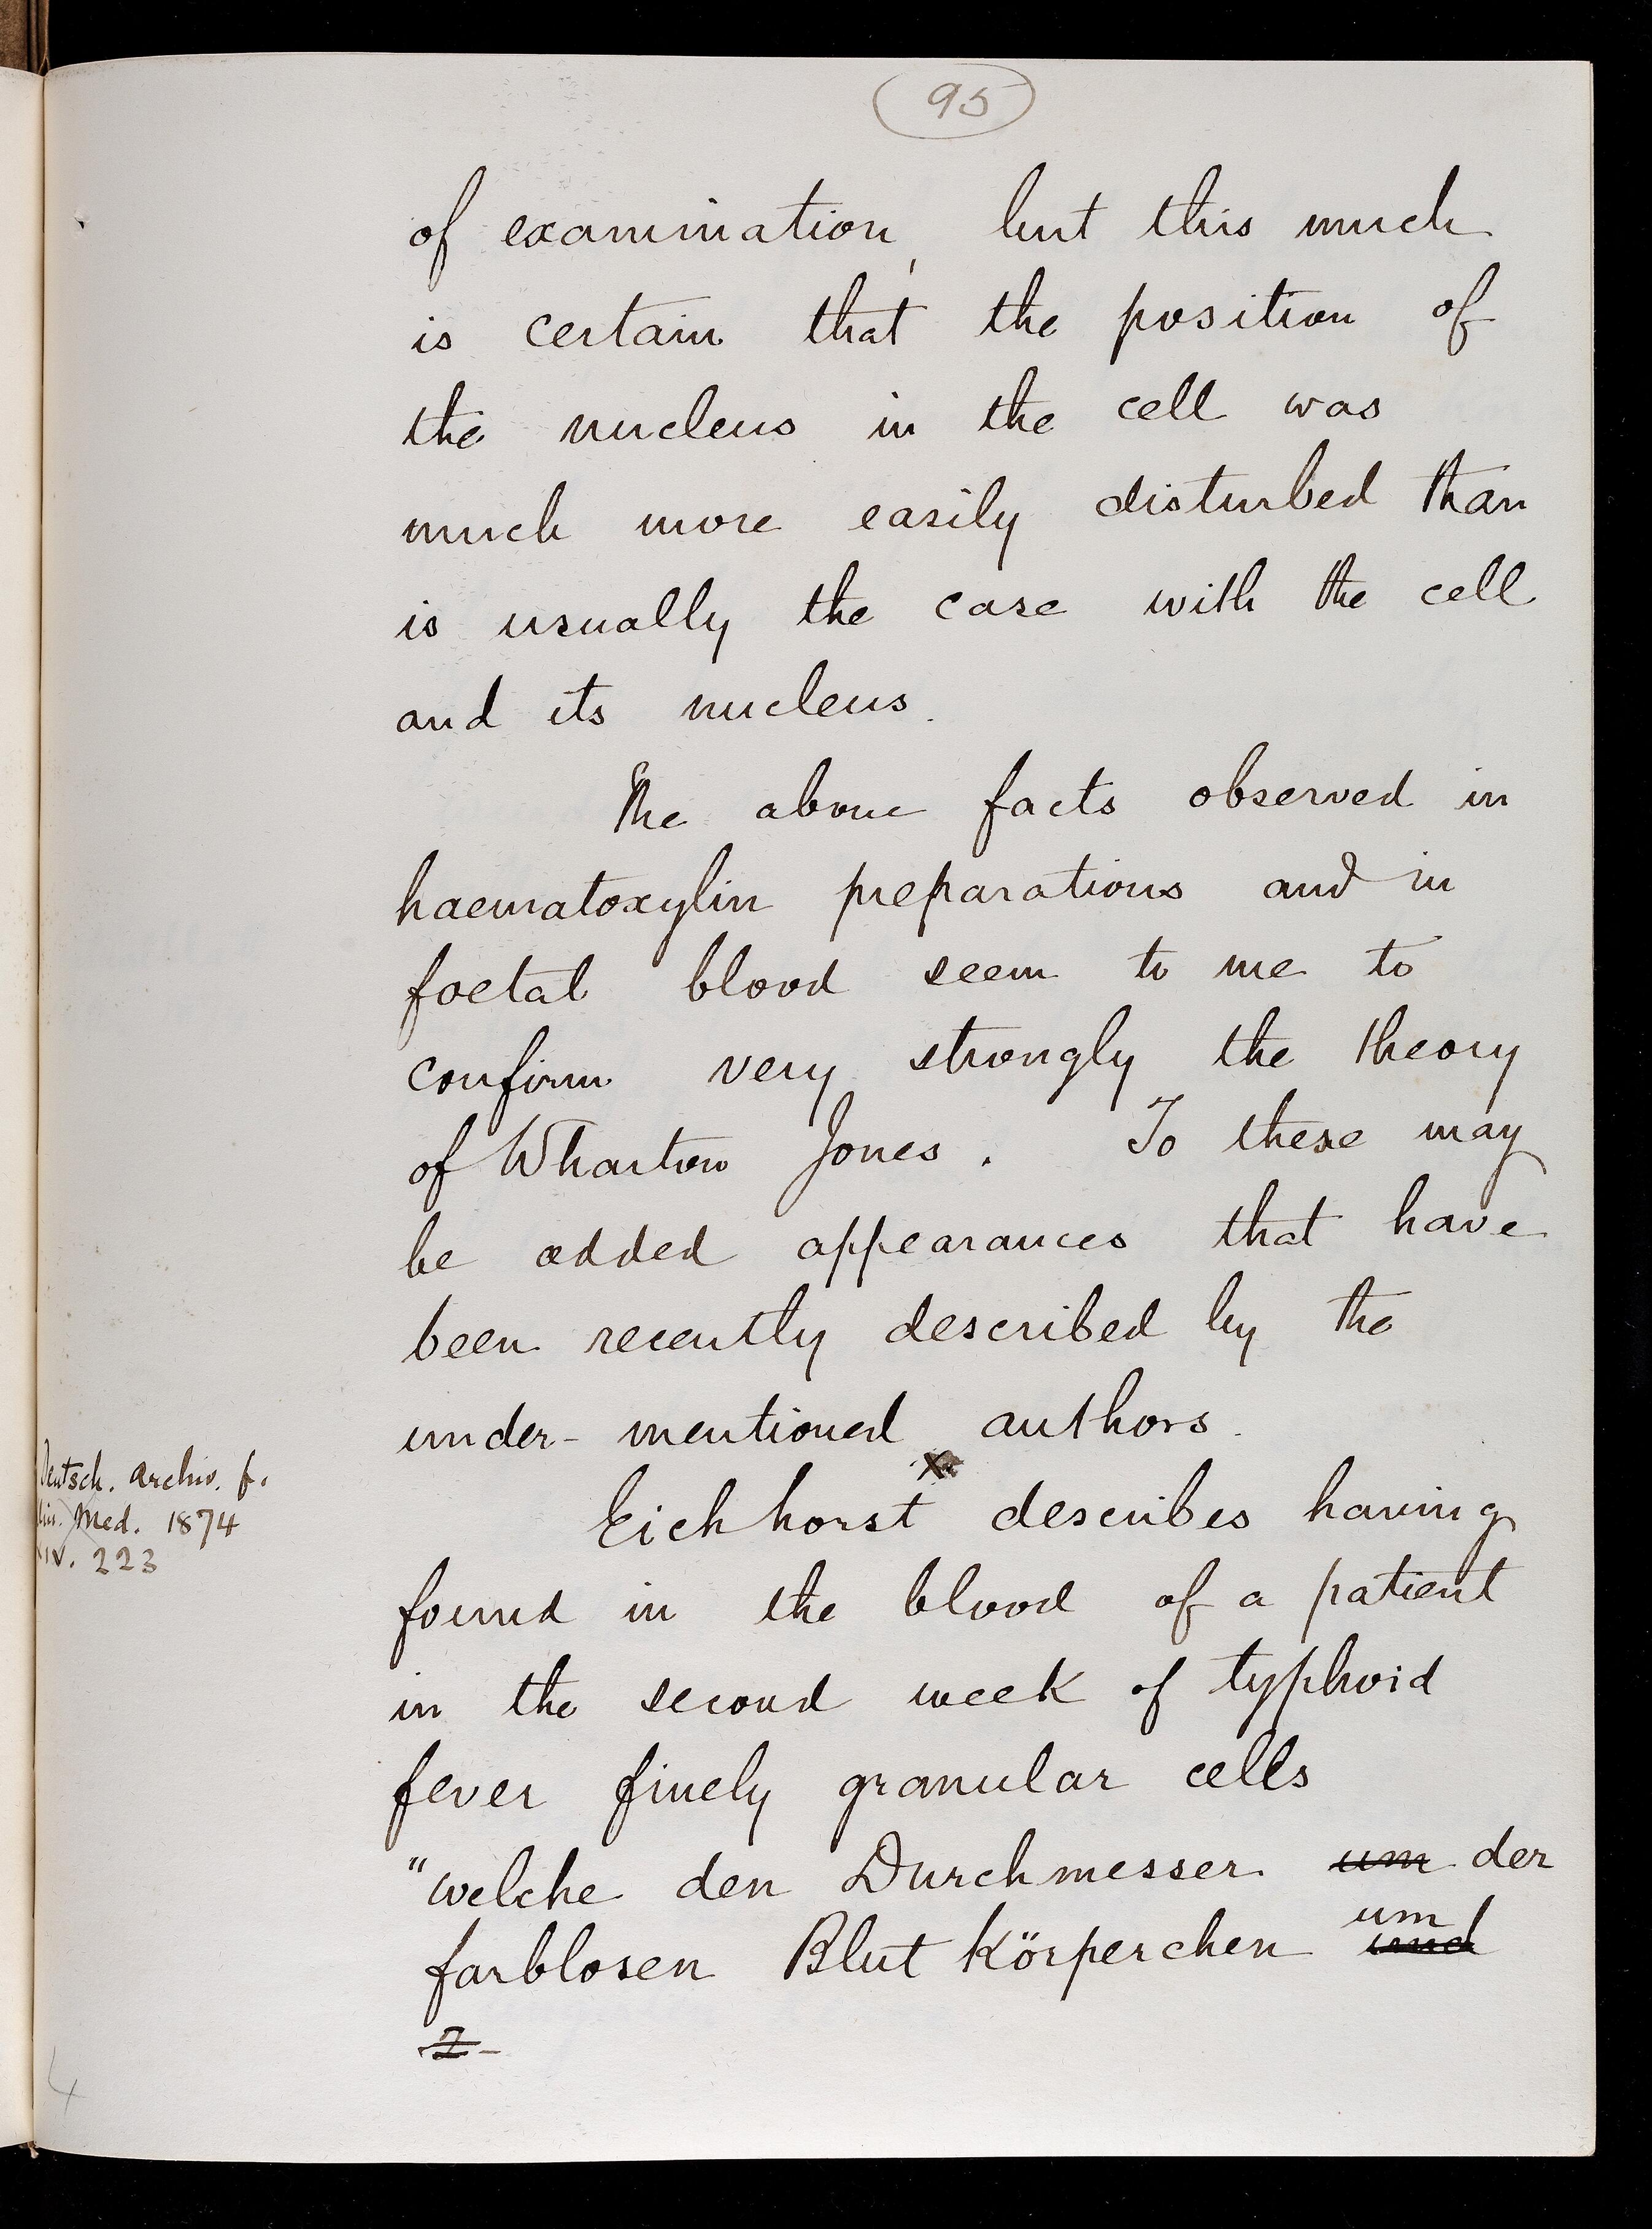 95
of examination, but this much
is certain that the position of
the nucleus in the cell was
much more easily disturbed than
is usually the case with the cell
and its nucleus.
The above facts observed in
haematoxylin preparations and in
foetal blood seem to me to
confirm very strongly the theory
of Wharton Jones. To these may
be added appearances that have
been recently described by the
under-mentioned authors.
x
Deutsch. Archiv. f.
Klin. Med. 1874
XIV. 223
Eichhorst describes having
found in the blood of a patient
in the second week of typhoid
fever finely granular cells
"welche den Durchmesser um der
farblosen Blut Körperchen um und
2
4